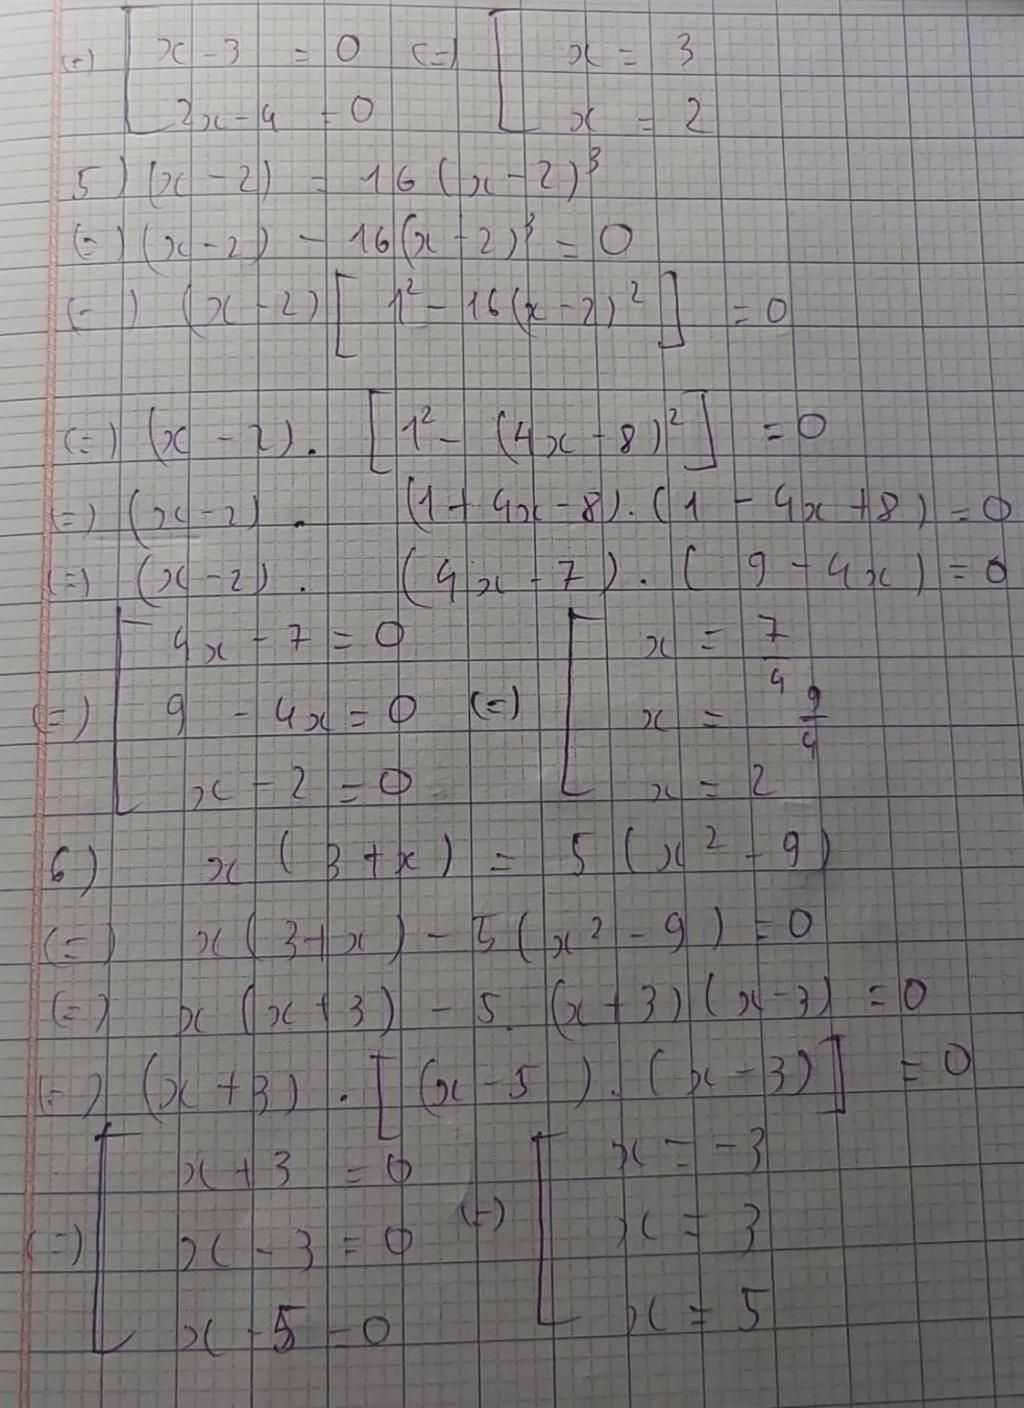 (=) [ x - 3 = 0 (=) [ x = 3
2x - 4 = 0 x = 2
5) (x - 2) = 16 (x - 2)³
(=) (x - 2) - 16(x - 2)³ = 0
(=) (x - 2) [ 1² - 16(x - 2)² ] = 0
(=) (x - 2). [ 1² - (4x - 8)² ] = 0
(=) (x - 2) . (1 + 4x - 8).(1 - 4x + 8) = 0
(=) (x - 2). (4x - 7).( 9 - 4x) = 0
[ 4x - 7 = 0 [ x = 7/4
(=) 9 - 4x = 0 (=) x = 9/4
x - 2 = 0 x = 2
6) x ( 3 + x ) = 5 (x² - 9)
(=) x ( 3 + x ) - 5 ( x² - 9 ) = 0
(=) x (x + 3) - 5. (x + 3)(x - 3) = 0
(=) (x + 3) . [ (x - 5 ). (x - 3) ] = 0
[ x + 3 = 0 [ x = -3
(=) x - 3 = 0 (=) x = 3
x - 5 = 0 x = 5